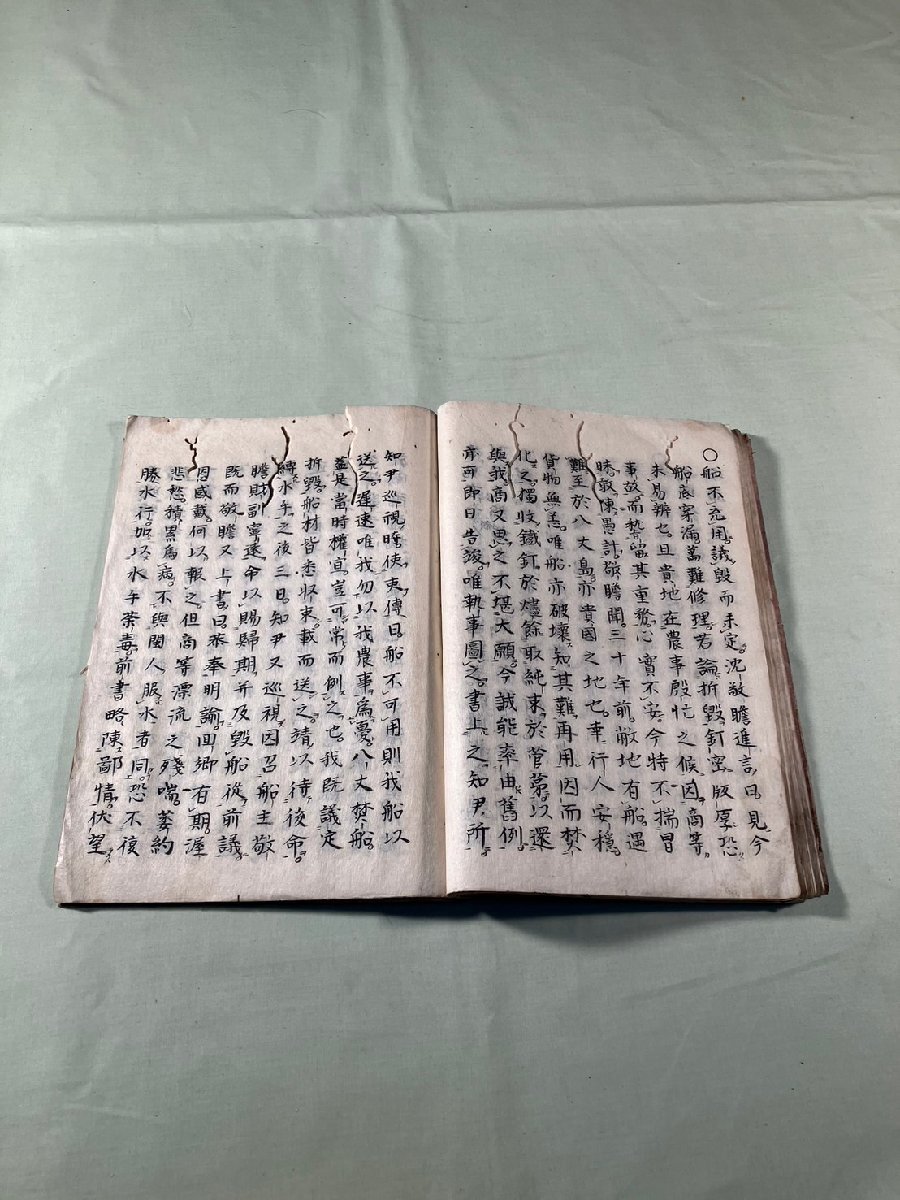 ○船不充用。議毀而未定。沈敬瞻進言曰。見今
船底穿漏。蓋難修理。若論折毀釘密版厚。恐
未易辨也。且貴地在農事殷忙之候。因商等
事故。而勢留其重務。心實不安。今特不揣冒
瞻聞三十年前。敝地有船遇
難至於八丈島。亦貴國之地也。幸行人安穏。
貨物無恙。唯船亦破壞。知其難再用。因而焚
化之。擂收鐵釘於燼餘。取純束於管第。以還
與我商。又思之。不堪大願。今誠能率由舊例。
亦可即日告竣。唯執事圖之。書上之。知尹所
知尹巡視。晚使吏傳曰。船不可用。則我船以
送之。遲速唯我。勿以我農事為憂。八丈焚船。
蓋是當時權宜。豈可常而例之也。我既議定
折毀。船材皆悉收束。載而送之。請以待後命。
水手之後三日。知尹又巡視。因召船主敬
瞻財副寧遠。命以賜歸期。并及毀船從前議。
既而敬瞻又上書。曰。奉明諭。回鄉有期。渥
因感戴。何以報之。但商等漂流之殘喘。萎約
悲愁。積累為病。不與閩人服水者同。恐不復
勝水行。如以水午荼毒。前書略陳鄙情。伏望